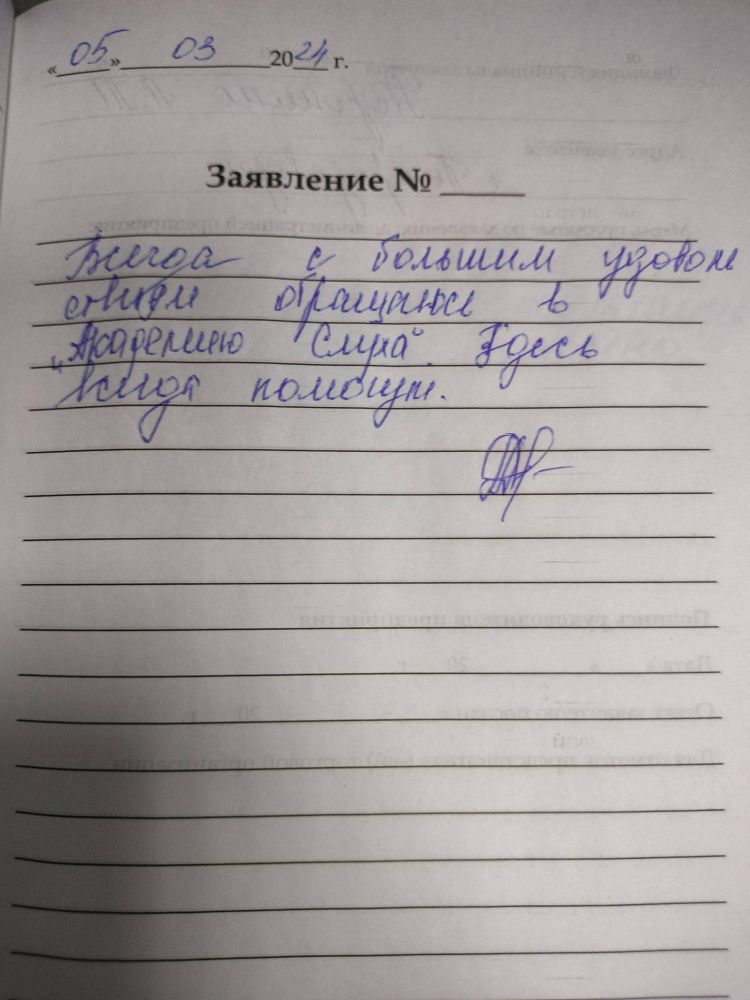 «05» 03 2024 г.
Заявление №
Всегда с большим удоволь
ствием обращаюсь в
"Академию Слуха". Здесь
всегда помогут.